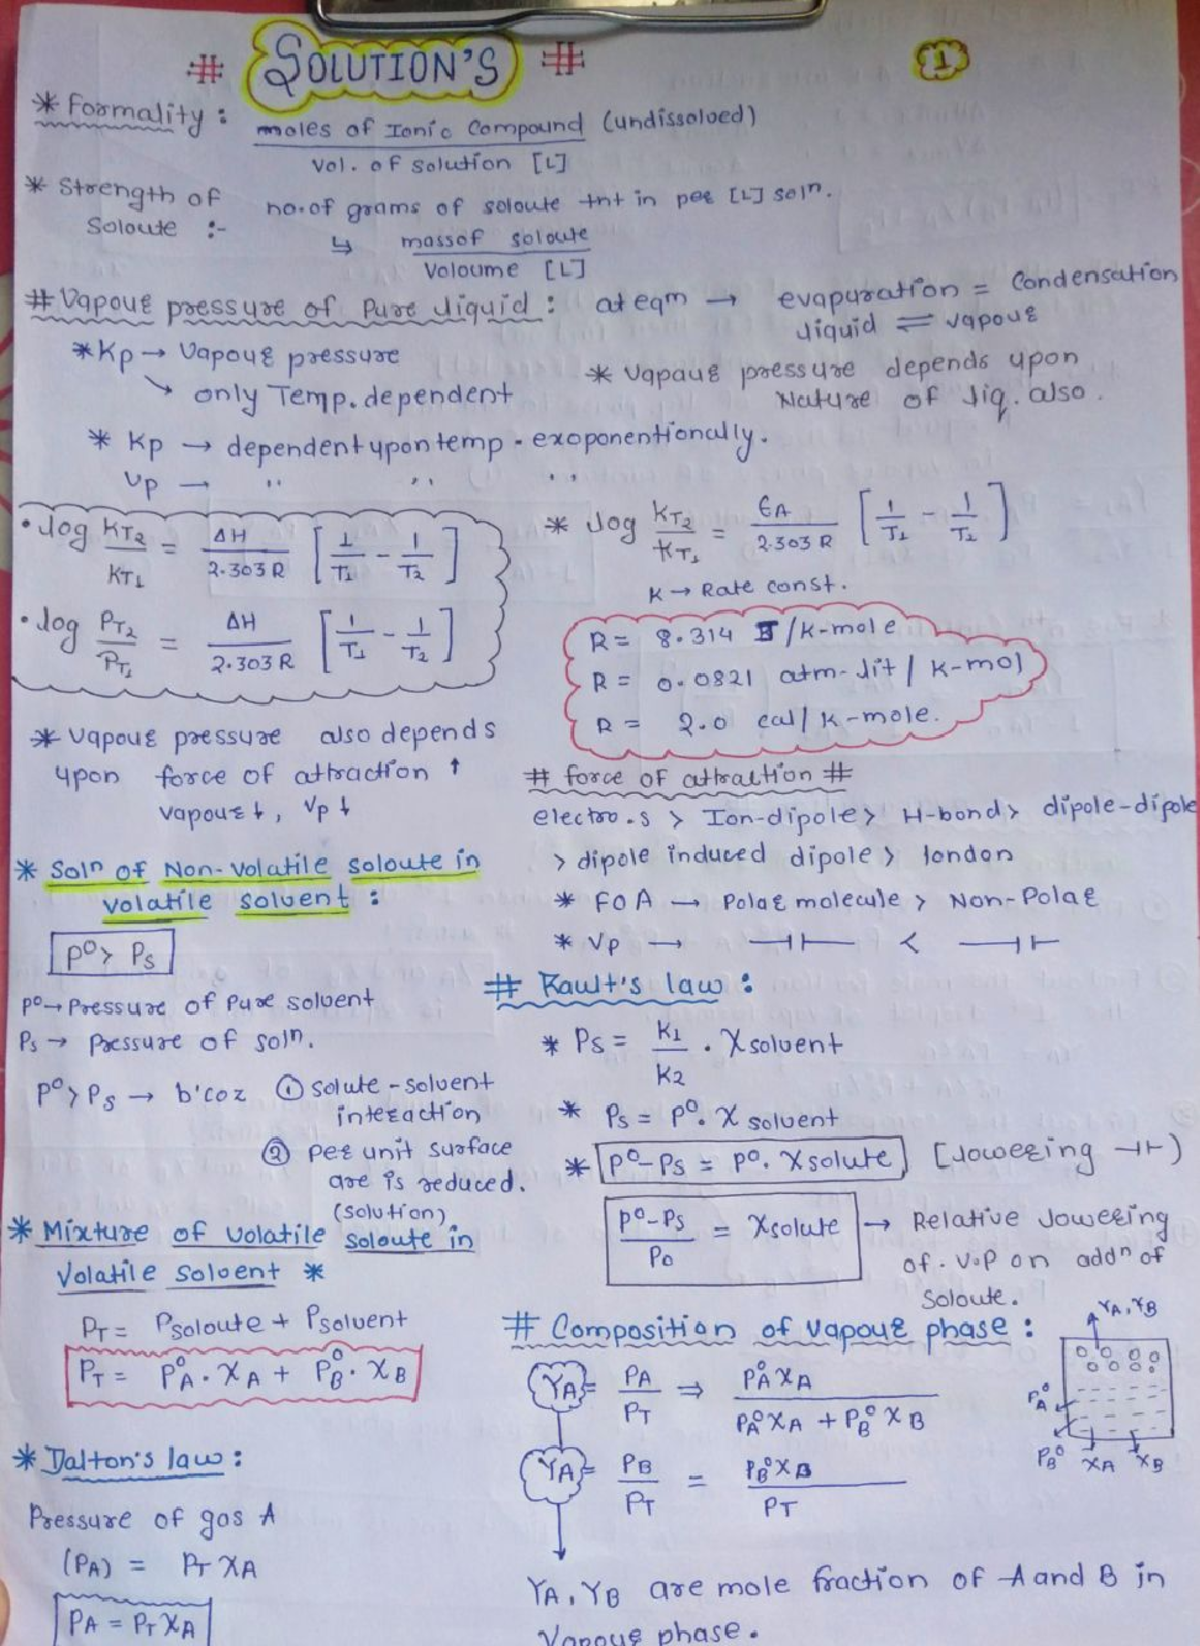 # SOLUTION'S #
1
* Formality : moles of Ionic Compound (undissoloed) / Vol. of solution [L]
* Strength of Soloute :- no. of grams of soloute tnt in per [L] solⁿ.
↳ mass of soloute / Voloume [L]
# Vapour pressure of Pure liquid : at eqm → evapuration = Condensation
liquid ⇌ vapour
* Kp → Vapour pressure
↘ only Temp. dependent
* Vapaur pressure depends upon
Nature of liq. also.
* Kp → dependent upon temp - exoponentionally.
Vp → '' '' ''
• log KT₂/KT₁ = ΔH/2.303 R [1/T₁ - 1/T₂]
* log KT₂/KT₁ = EA/2.303 R [1/T₁ - 1/T₂]
K → Rate const.
• log PT₂/PT₁ = ΔH/2.303 R [1/T₁ - 1/T₂]
R = 8.314 J/K-mole
R = 0.0821 atm-lit / K-mol
R = 2.0 cal/K-mole.
* Vapour pressure also depends
upon force of attraction ↑
vapour↓, Vp↓
# force of attraction #
electro.s > Ion-dipole> H-bond> dipole-dipole
> dipole induced dipole > london
* FOA → Polar molecule > Non-Polar
* Vp → —⊣⊢— < —⊣⊢
* Solⁿ of Non-Volatile soloute in
volatile solvent :
P⁰> Ps
P⁰→ Pressure of Pure solvent
Ps → Pressure of solⁿ.
P⁰> Ps → b'coz ① solute-solvent
interaction
② per unit surface
are is reduced.
(solution)
# Rault's law :
* Ps = K1/K2 . Xsolvent
* Ps = P⁰. X solvent
* P⁰-Ps = P⁰. Xsolute [lowering ⊣⊢)
P⁰-Ps/P₀ = Xsolute → Relative lowering
of. v.p on addⁿ of
Soloute.
* Mixture of volatile soloute in
Volatile Solvent *
PT = Psoloute + Psolvent
PT = P⁰A . XA + P⁰B . XB
* Dalton's law :
Pressure of gas A
(PA) = PT XA
PA = PT XA
# Composition of vapour phase :
YA = PA/PT ⇒ P⁰A XA / P⁰A XA + P⁰B XB
YA = PB/PT = P⁰B XB / PT
YA, YB
P⁰A
P⁰B XA XB
YA, YB are mole fraction of A and B in
Vapour phase.